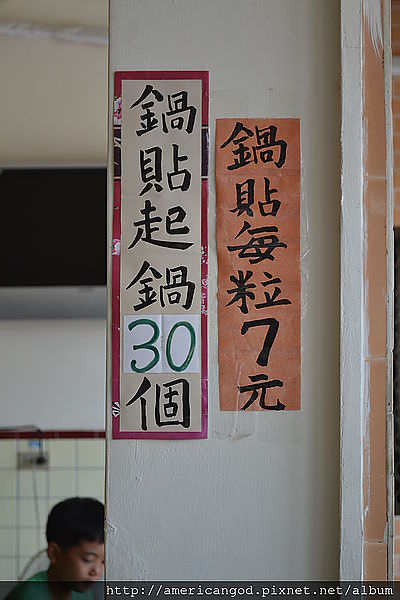 鍋貼起鍋30個
鍋貼每粒7元
http://americangod.pixnet.net/album